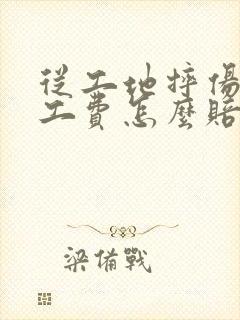 從工地摔傷
工費怎麼賠
梁備戰